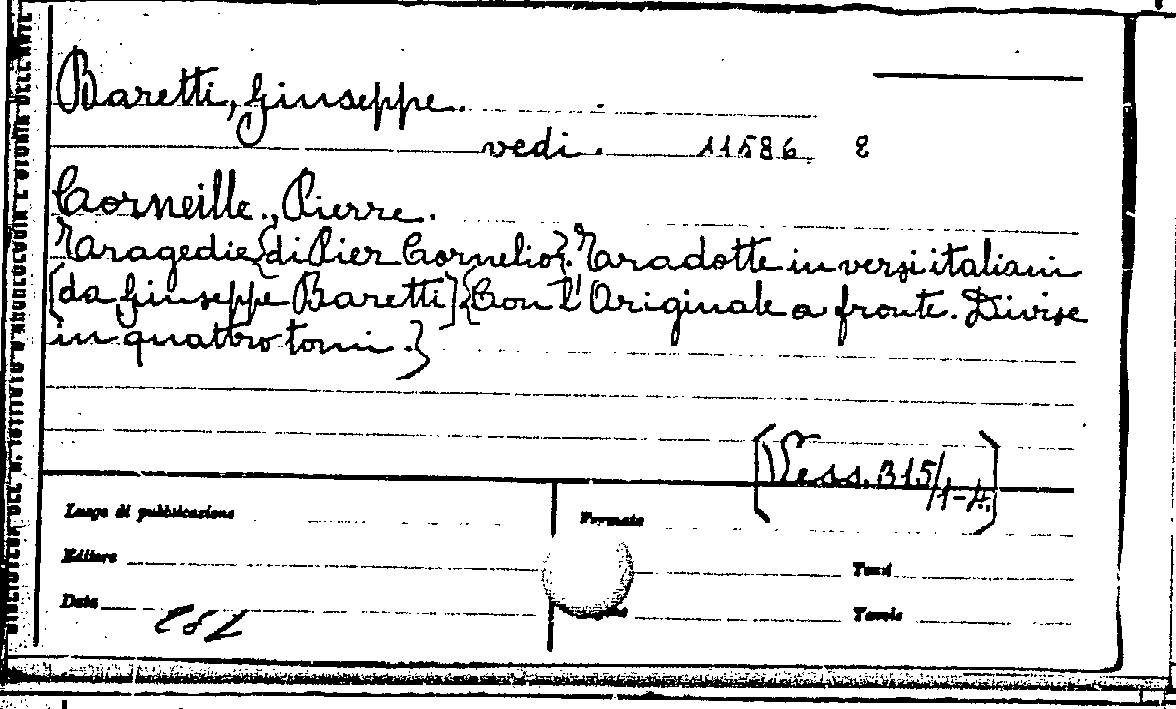 Baretti, Giuseppe.
vedi. 11586 8
Corneille., Pierre.
Tragedie{di Pier Cornelio}. Tradotte in versi italiani
[da Giuseppe Baretti]{Con l'Originale a fronte. Divise
in quattro tomi.}
[Vess. B15/1-4.]
Luogo di pubblicazione
Formato
Editore
Tomi
Data
Tavole
BIBLIOTECA DEL R. ISTITUTO D'ARCHEOLOGIA E STORIA DELL'ARTE